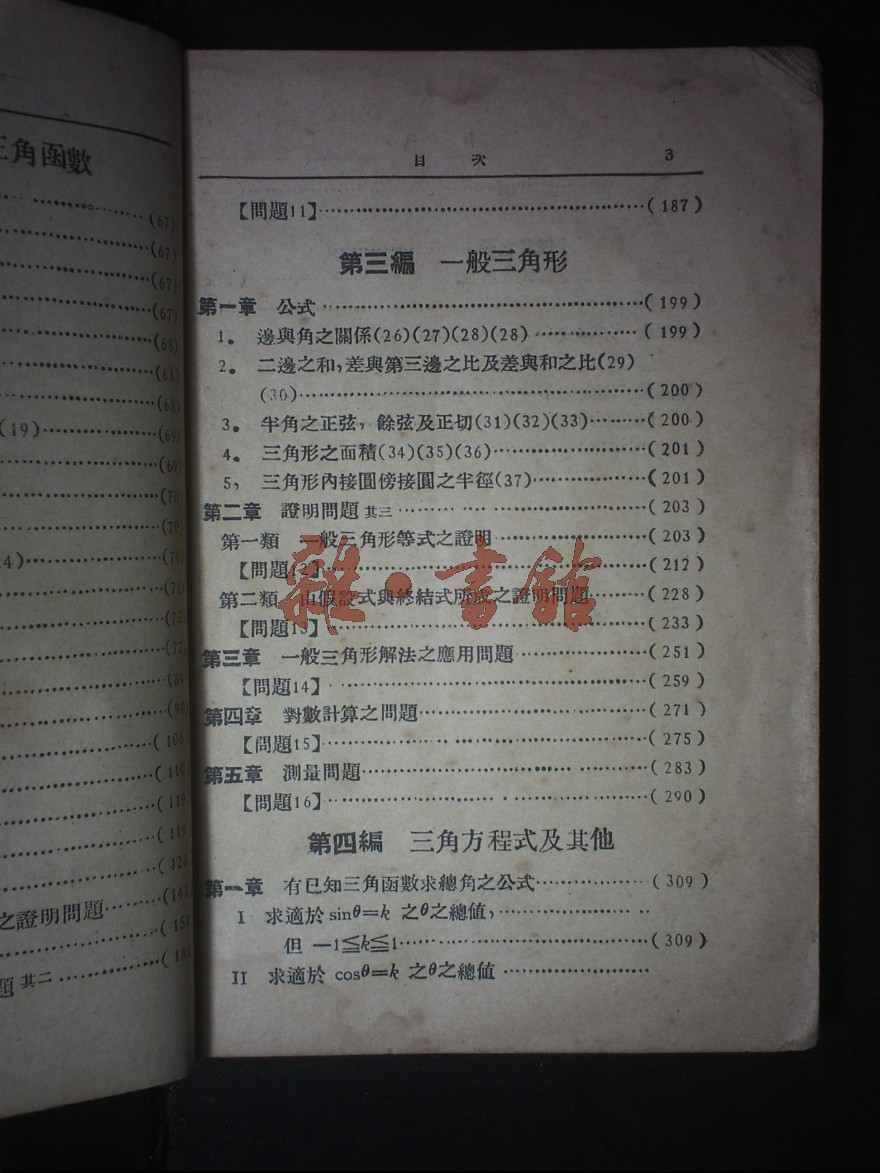 三角函數
(67)
(67)
(67)
(67)
(68)
(68)
(68)
(19)(69)
(69)
(70)
(70)
4)(70)
(71)
(77)
(90)
(106
(110
(119
(119
(126
之證明問題(142
(151
題 其二
目 次 3
【問題11】(187)
第三編 一般三角形
第一章 公式(199)
1。 邊與角之關係(26)(27)(28)(28)(199)
2。 二邊之和,差與第三邊之比及差與和之比(29)
(30)(200)
3。 半角之正弦,餘弦及正切(31)(32)(33)(200)
4。 三角形之面積(34)(35)(36)(201)
5, 三角形內接圓傍接圓之半徑(37)(201)
第二章 證明問題 其三(203)
第一類 一般三角形等式之證明(203)
【問題12】(212)
第二類 由假設式與終結式所成之證明問題(228)
【問題13】(233)
第三章 一般三角形解法之應用問題(251)
【問題14】(259)
第四章 對數計算之問題(271)
【問題15】(275)
第五章 測量問題(283)
【問題16】(290)
第四編 三角方程式及其他
第一章 有已知三角函數求總角之公式(309)
I 求適於 sinθ=k 之θ之總值,
但 —1≦k≦1(309)
II 求適於 cosθ=k 之θ之總值
雜·書館